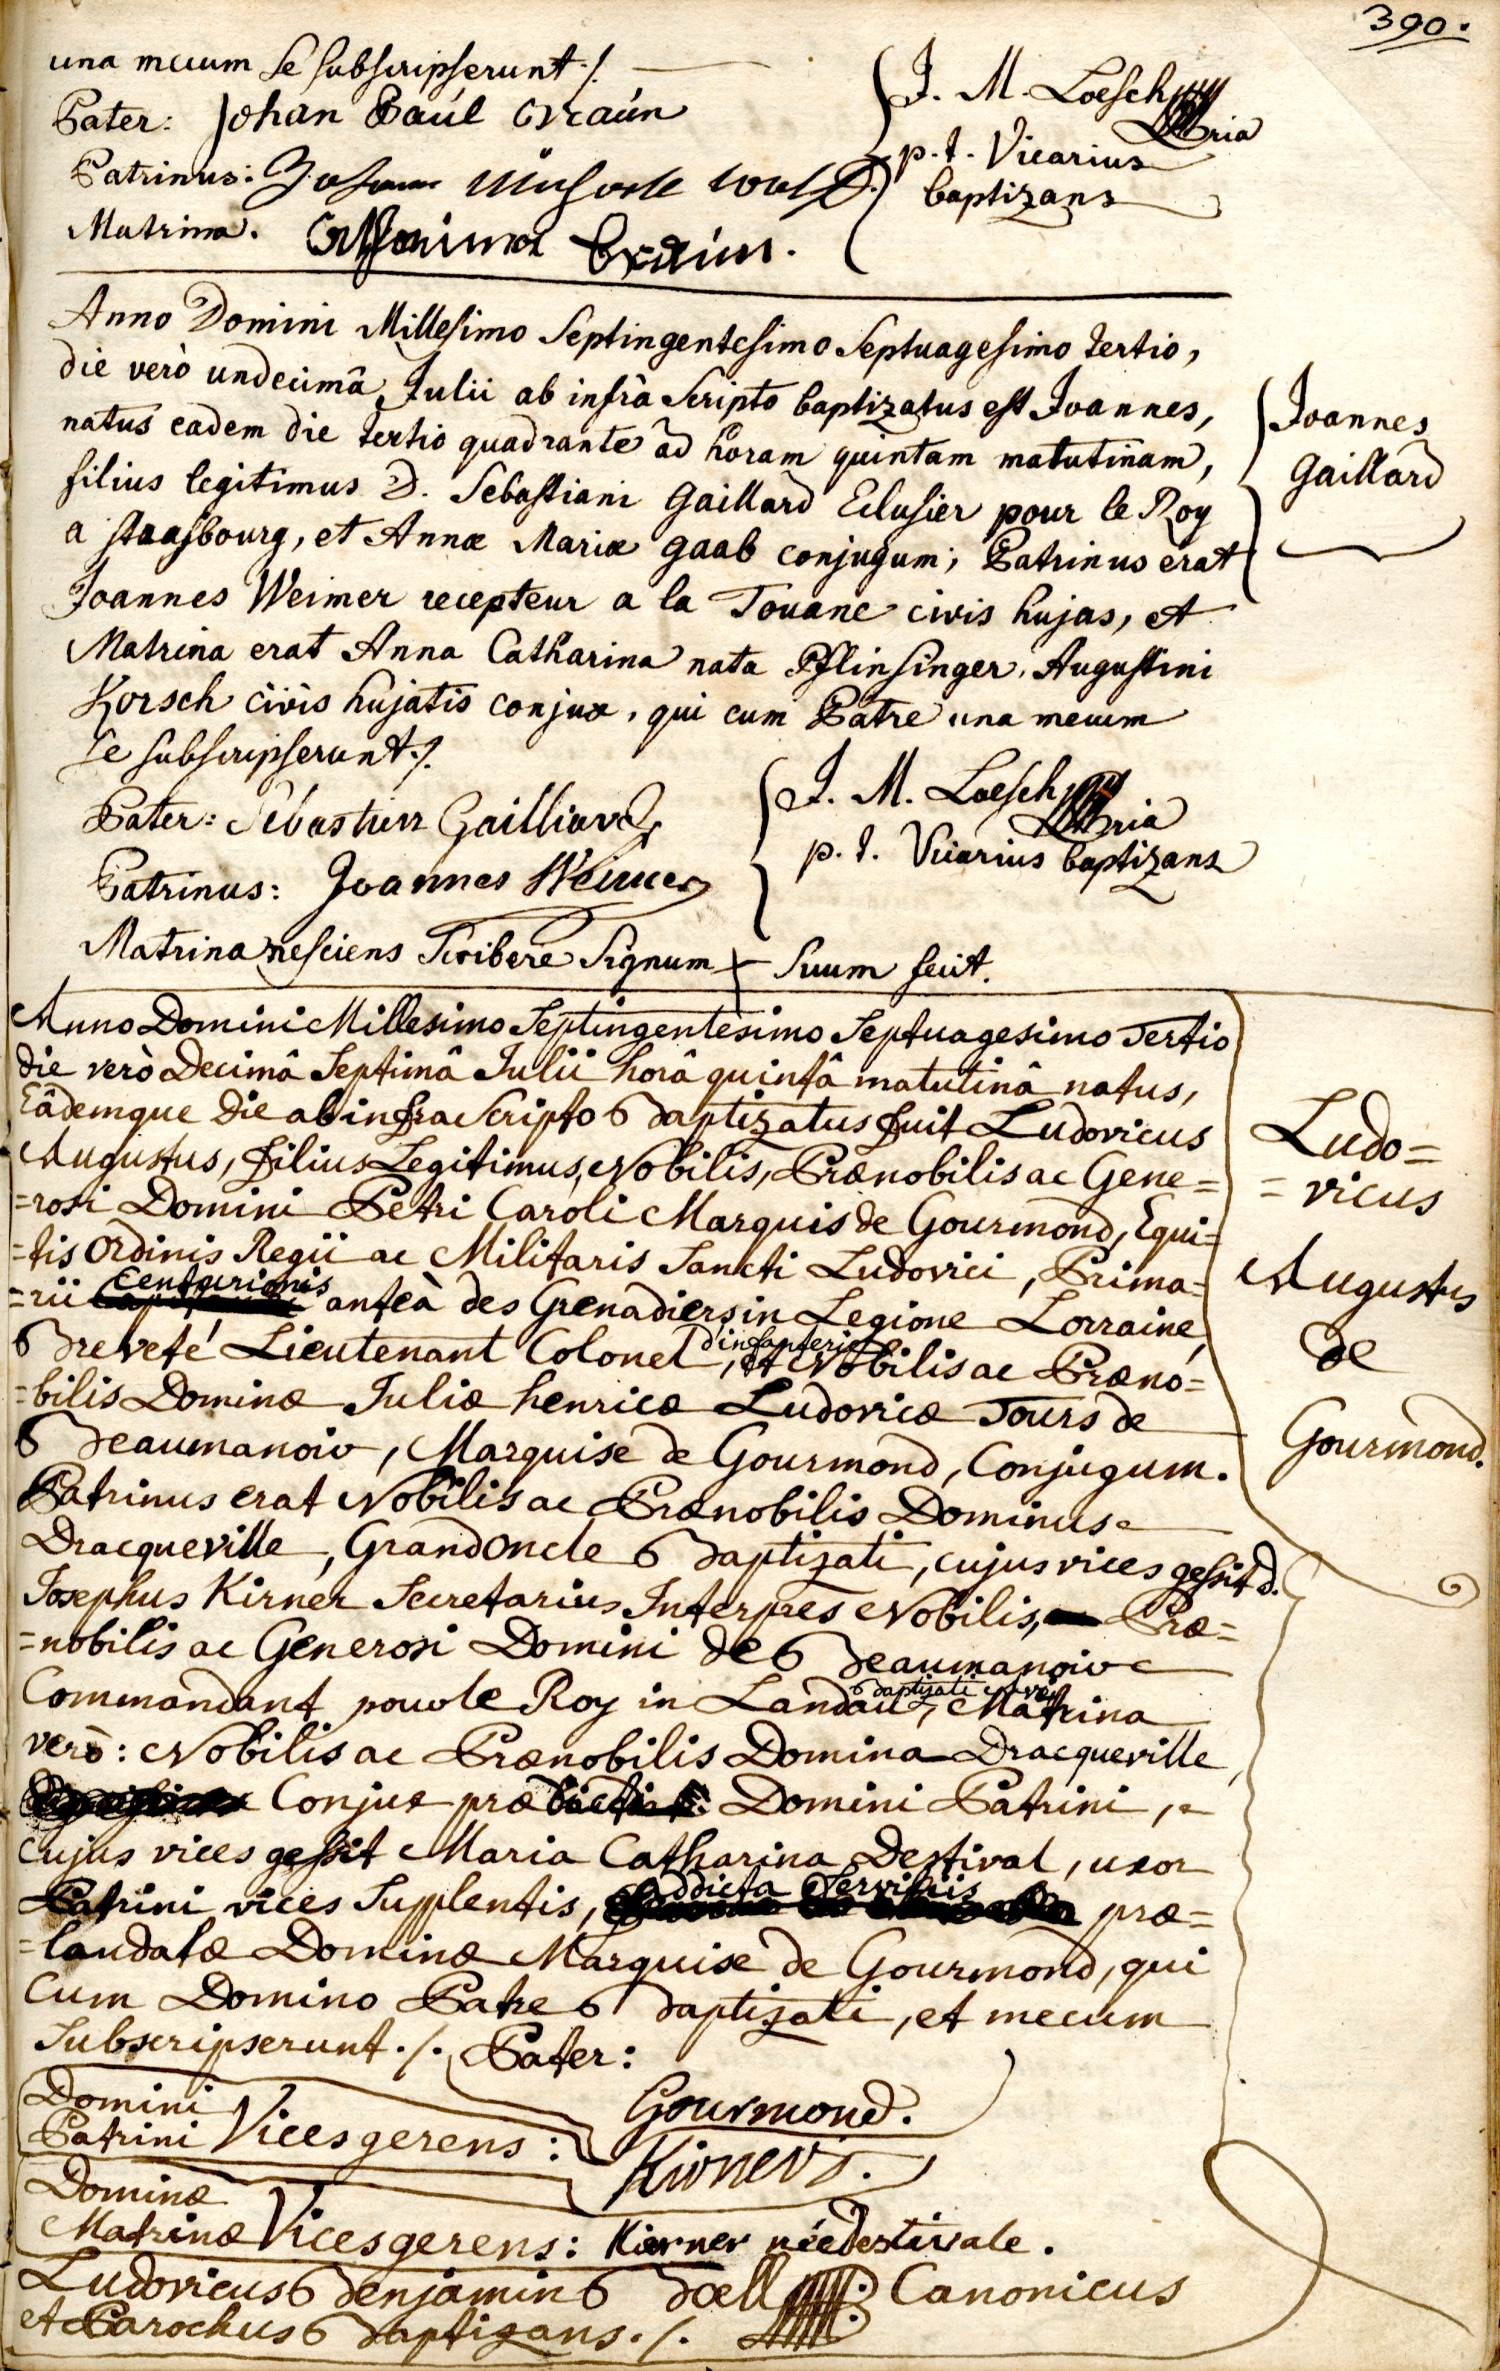 390.
una mecum se subscripserunt ./.
Pater: Johan Paúl Braún
Patrinus: Johann
Matrina. Braún.
J. M. Loesch
p. t. Vicarius
baptizans
Anno Domini Millesimo Septingentesimo Septuagesimo tertio,
die verò undecimâ Julii ab infrà Scripto baptizatus est Joannes,
natus eadem die tertio quadrante ad horam quintam matutinam,
filius legitimus D. Sebastiani Gaillard Eclusier pour le Roy
a strasbourg, et Annæ Mariæ Gaab conjugum; Patrinus erat
Joannes Weimer recepteur a la Douane civis hujas, et
Matrina erat Anna Catharina nata Pflinsinger, Augustini
Korsch civis hujatis conjux, qui cum Patre una mecum
se subscripserunt ./.
Joannes
Gaillard
Pater: Sebastien Gailliard
Patrinus: Joannes Weimer
Matrina nesciens Scribere Signum + Suum fecit.
J. M. Loesch
p. t. Vicarius baptizans
Anno Domini Millesimo Septingentesimo Septuagesimo Tertio
die verò Decimâ Septimâ Julii horâ quintâ matutinâ natus,
Eâdemque die ab infra Scripto Baptizatus fuit Ludovicus
Augustus, filius Legitimus, Nobilis, Prænobilis ac Gene=
=rosi Domini Petri Caroli Marquis de Gourmond, Equi=
=tis Ordinis Regii ac Militaris Sancti Ludovici, Prima=
=rii Centurionis anteà des Grenadiers in Legione Lorraine,
Breveté Lieutenant Colonel d'infanterie, et Nobilis ac Præno=
=bilis Dominæ Juliæ henricæ Ludovicæ Tours de
Beaumanoir, Marquise de Gourmond, Conjugum.
Patrinus erat Nobilis ac Prænobilis Dominus
Dracqueville, Grand Oncle Baptizati, cujus vices gessit d.
Josephus Kirner Secretarius Interpres Nobilis, Præ=
=nobilis ac Generosi Domini de Beaumanoir
Commandant pour le Roy in Landau, baptizati avi, Matrina
verò: Nobilis ac Prænobilis Domina Dracqueville,
Conjux præ Domini Patrini,
Cujus vices gessit Maria Catharina Destival, uxor
Patrini vices Supplentis, addicta Servitiis præ=
=laudatæ Dominæ Marquise de Gourmond, qui
Cum Domino Patre Baptizati, et mecum
Subscripserunt ./. Pater:
Gourmond.
Domini
Patrini Vices gerens: Kirner.
Dominæ
Matrinæ Vices gerens: Kirner née Destivale.
Ludovicus Benjamin Boell Canonicus
et Parochus Baptizans ./.
Ludo=
=vicus
Augustus
de
Gourmond.